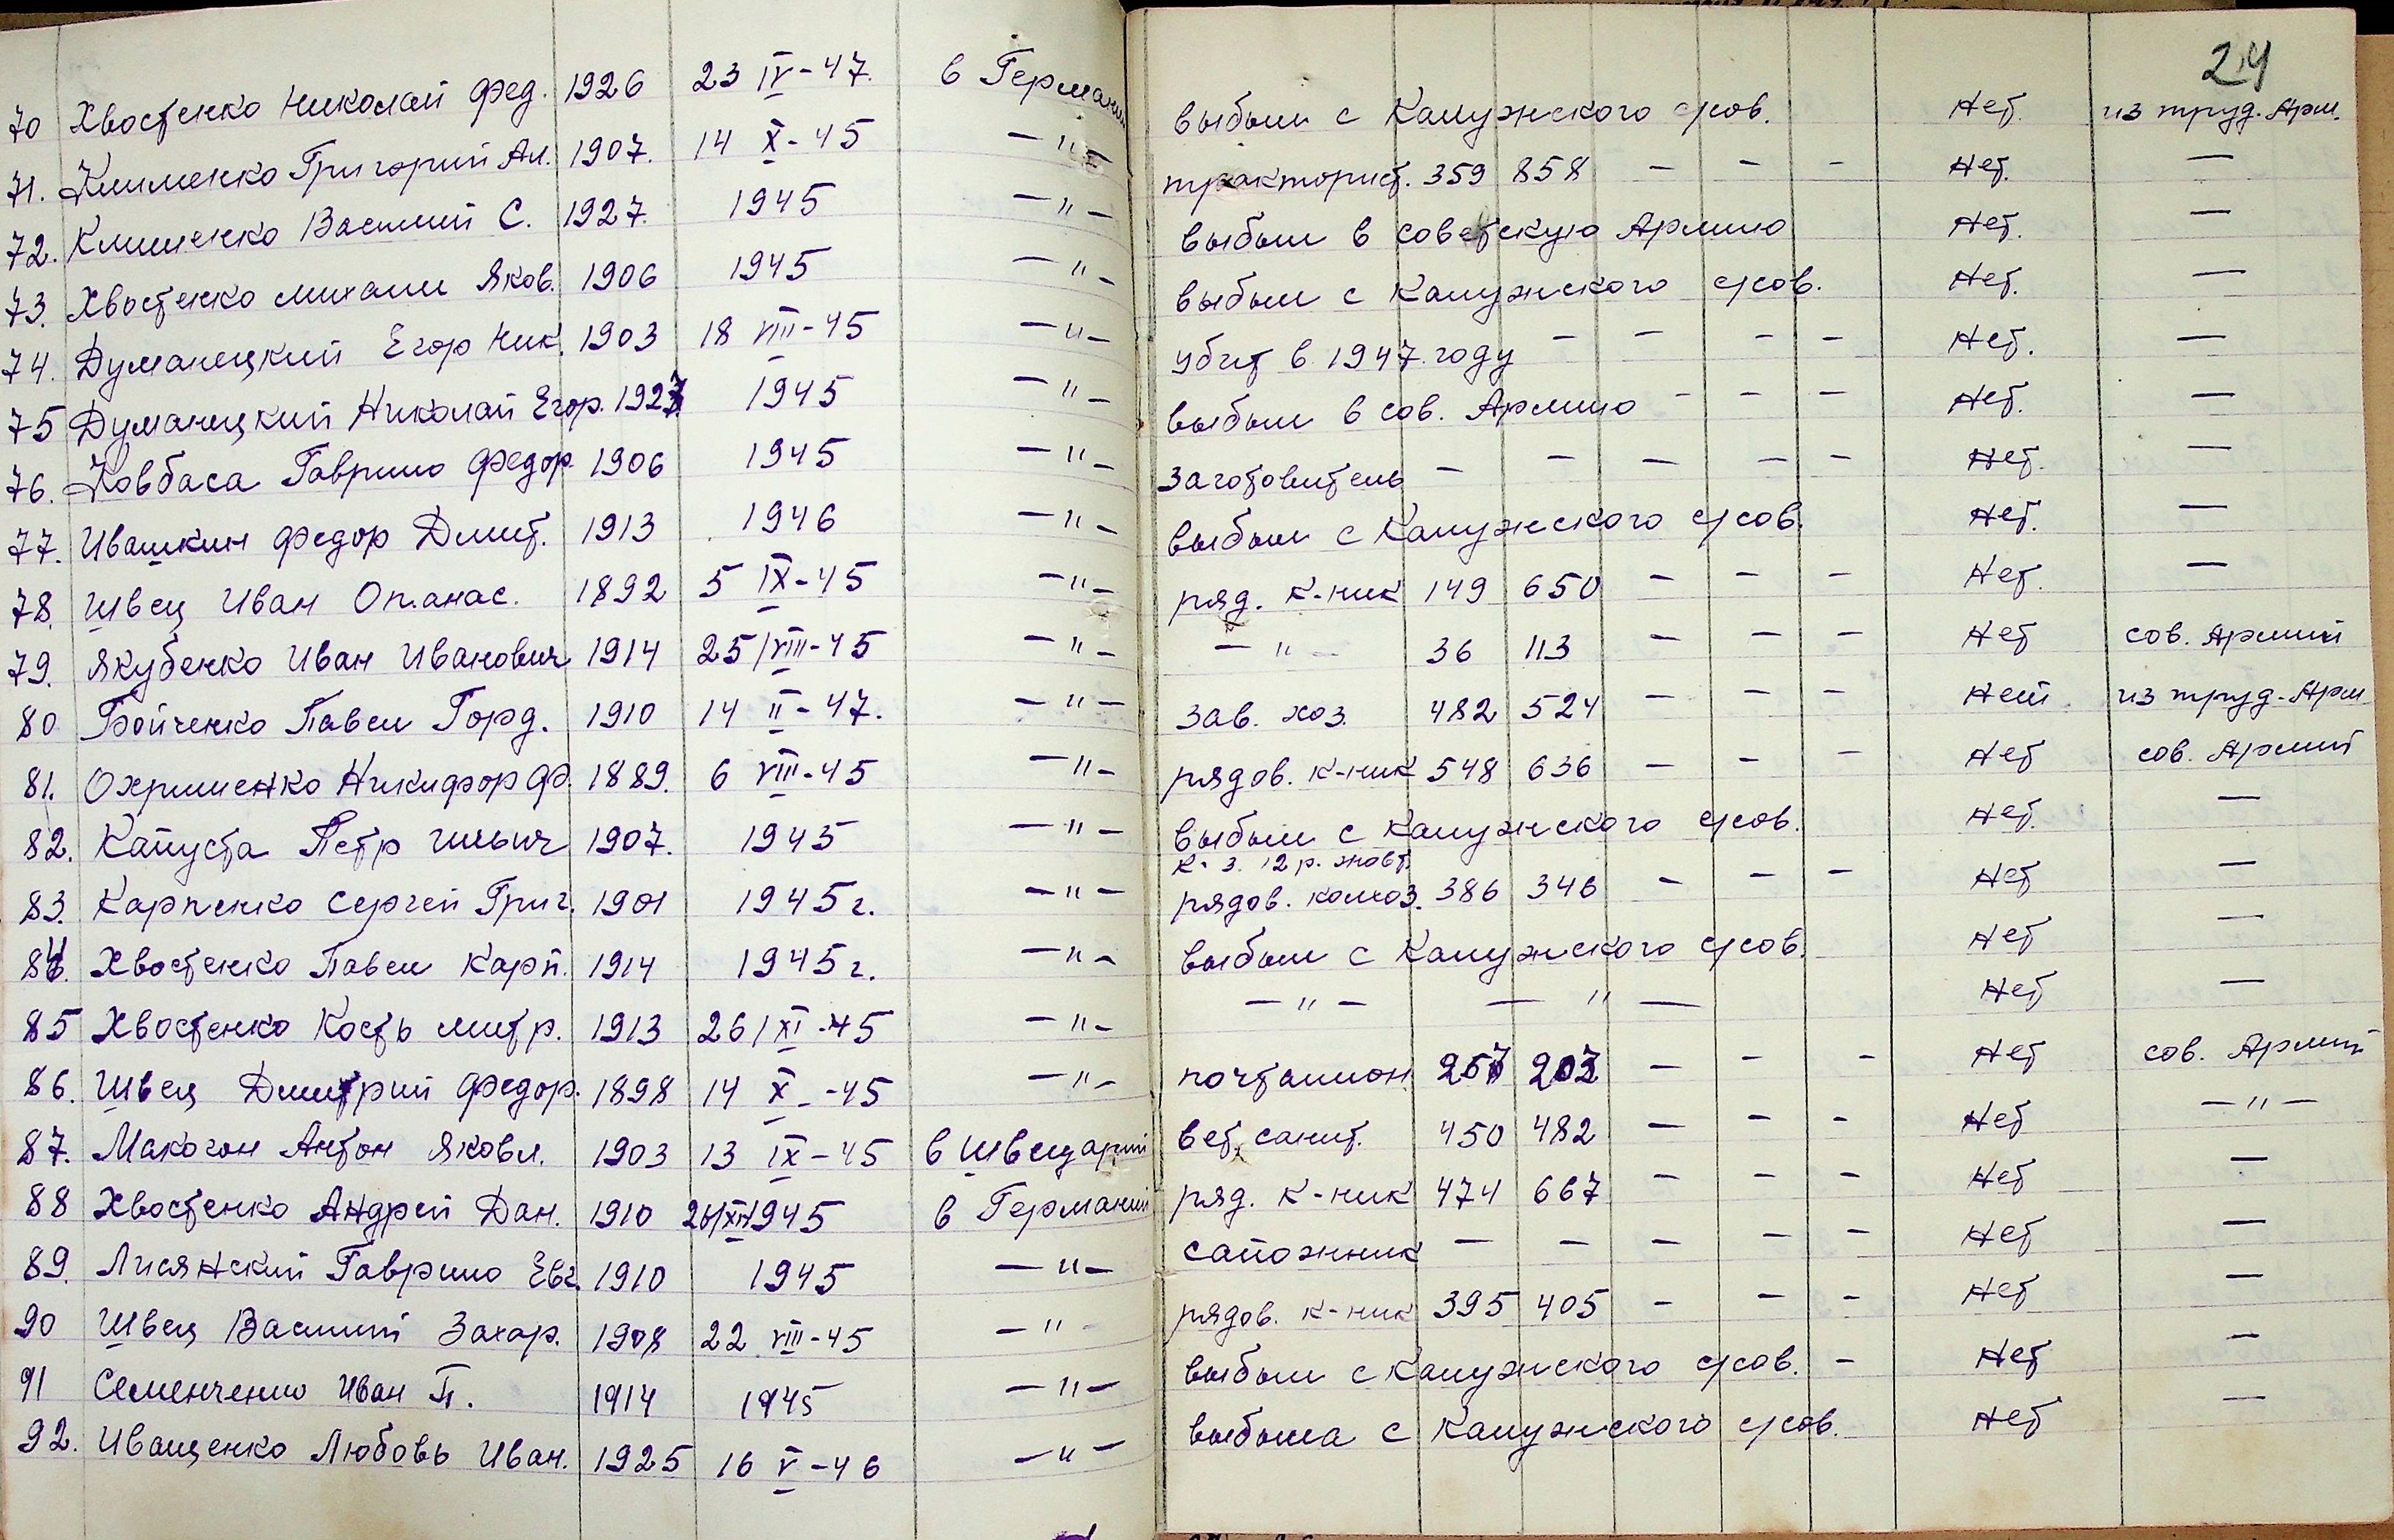 24
70 Хвостенко Николай Фед. 1926 23 IV-47. в Германии выбыл с Калужского с/сов. Нет. из труд. Арм.
71. Клименко Григорий Ал. 1907. 14 X-45 -"- тракторист. 359 858 - - - Нет. -
72. Клименко Василий С. 1927. 1945 -"- выбыл в советскую Армию Нет. -
73. Хвостенко Михаил Яков. 1906 1945 -"- выбыл с Калужского с/сов. Нет. -
74. Думанецкий Егор Ник. 1903 18 VIII-45 -"- убит в 1947 году - - - - Нет. -
75 Думанецкий Николай Егор. 1927 1945 -"- выбыл в сов. Армию - - - - Нет. -
76. Ковбаса Гаврило Федор. 1906 1945 -"- заготовитель - - - - - Нет. -
77. Ивашкин Федор Дмит. 1913 1946 -"- выбыл с Калужского с/сов. Нет. -
78. Швец Иван Опанас. 1892 5 IX-45 -"- ряд. к-ник 149 650 - - - Нет. -
79. Якубенко Иван Иванович 1914 25/VIII-45 -"- -"- 36 113 - - - Нет сов. Армии
80 Бойченко Павел Горд. 1910 14 II-47. -"- зав. хоз. 482 524 - - - Нет из труд-Арм
81. Охрименко Никифор Ф. 1889. 6 VIII-45 -"- рядов. к-ник 548 636 - - - Нет сов. Армии
82. Капуста Петр Ильич 1907. 1945 -"- выбыл с Калужского с/сов. Нет. -
к-з. 12 р. жовт.
83. Карпенко Сергей Григ. 1901 1945 г. -"- рядов. колхоз. 386 346 - - - Нет -
84. Хвостенко Павел Карп. 1914 1945 г. -"- выбыл с Калужского с/сов. Нет -
85 Хвостенко Кость Митр. 1913 26/XI-45 -"- -"- -"- Нет -
86. Швец Дмитрий Федор. 1898 14 X-45 -"- почталион 257 203 - - - Нет сов. Армии
87. Макогон Антон Яковл. 1903 13 IX-45 в Швецарии вет. санит. 450 482 - - - Нет -"-
88 Хвостенко Андрей Дан. 1910 26/XII1945 в Германии ряд. к-ник 474 667 - - - Нет -
89. Лисянский Гаврило Евг. 1910 1945 -"- сапожник - - - - - Нет -
90 Швец Василий Захар. 1908 22 VIII-45 -"- рядов. к-ник 395 405 - - - Нет -
91 Семенченко Иван П. 1914 1945 -"- выбыл с Калужского с/сов. - Нет -
92. Иващенко Любовь Иван. 1925 16 V-46 -"- выбыла с Калужского с/сов. Нет -